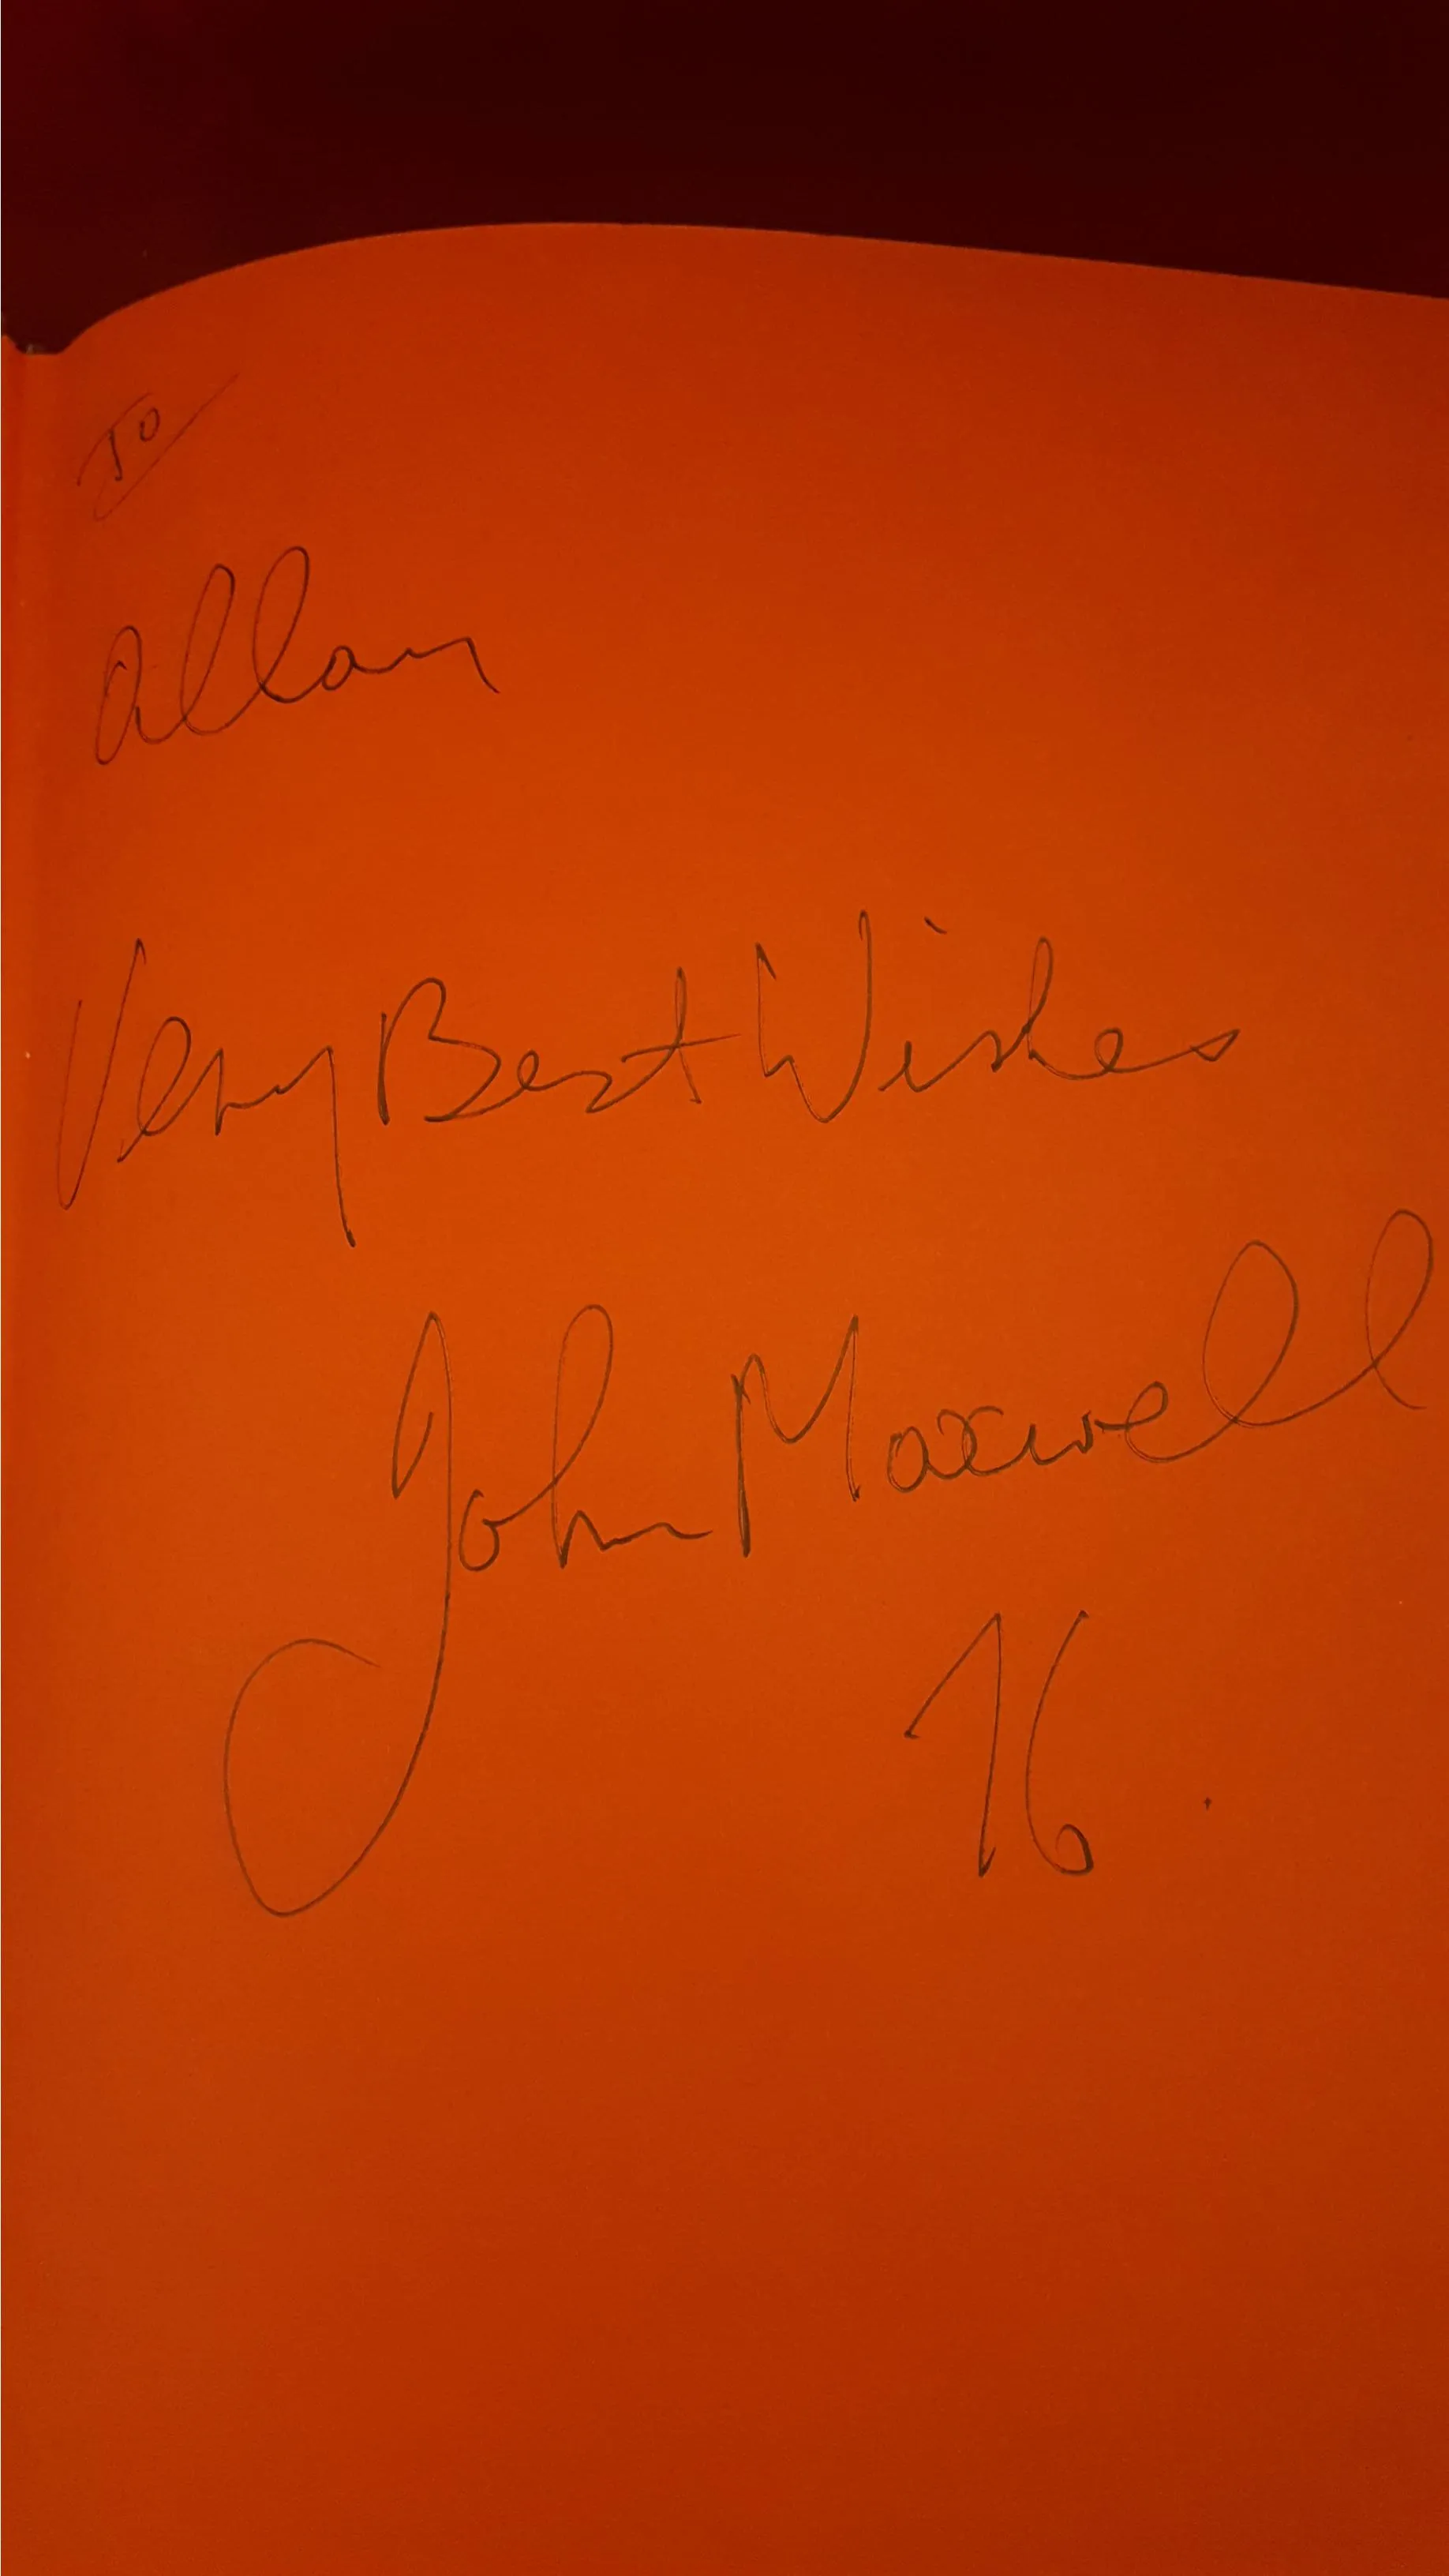 To
Allan
Very Best Wishes
John Maxwell
16.